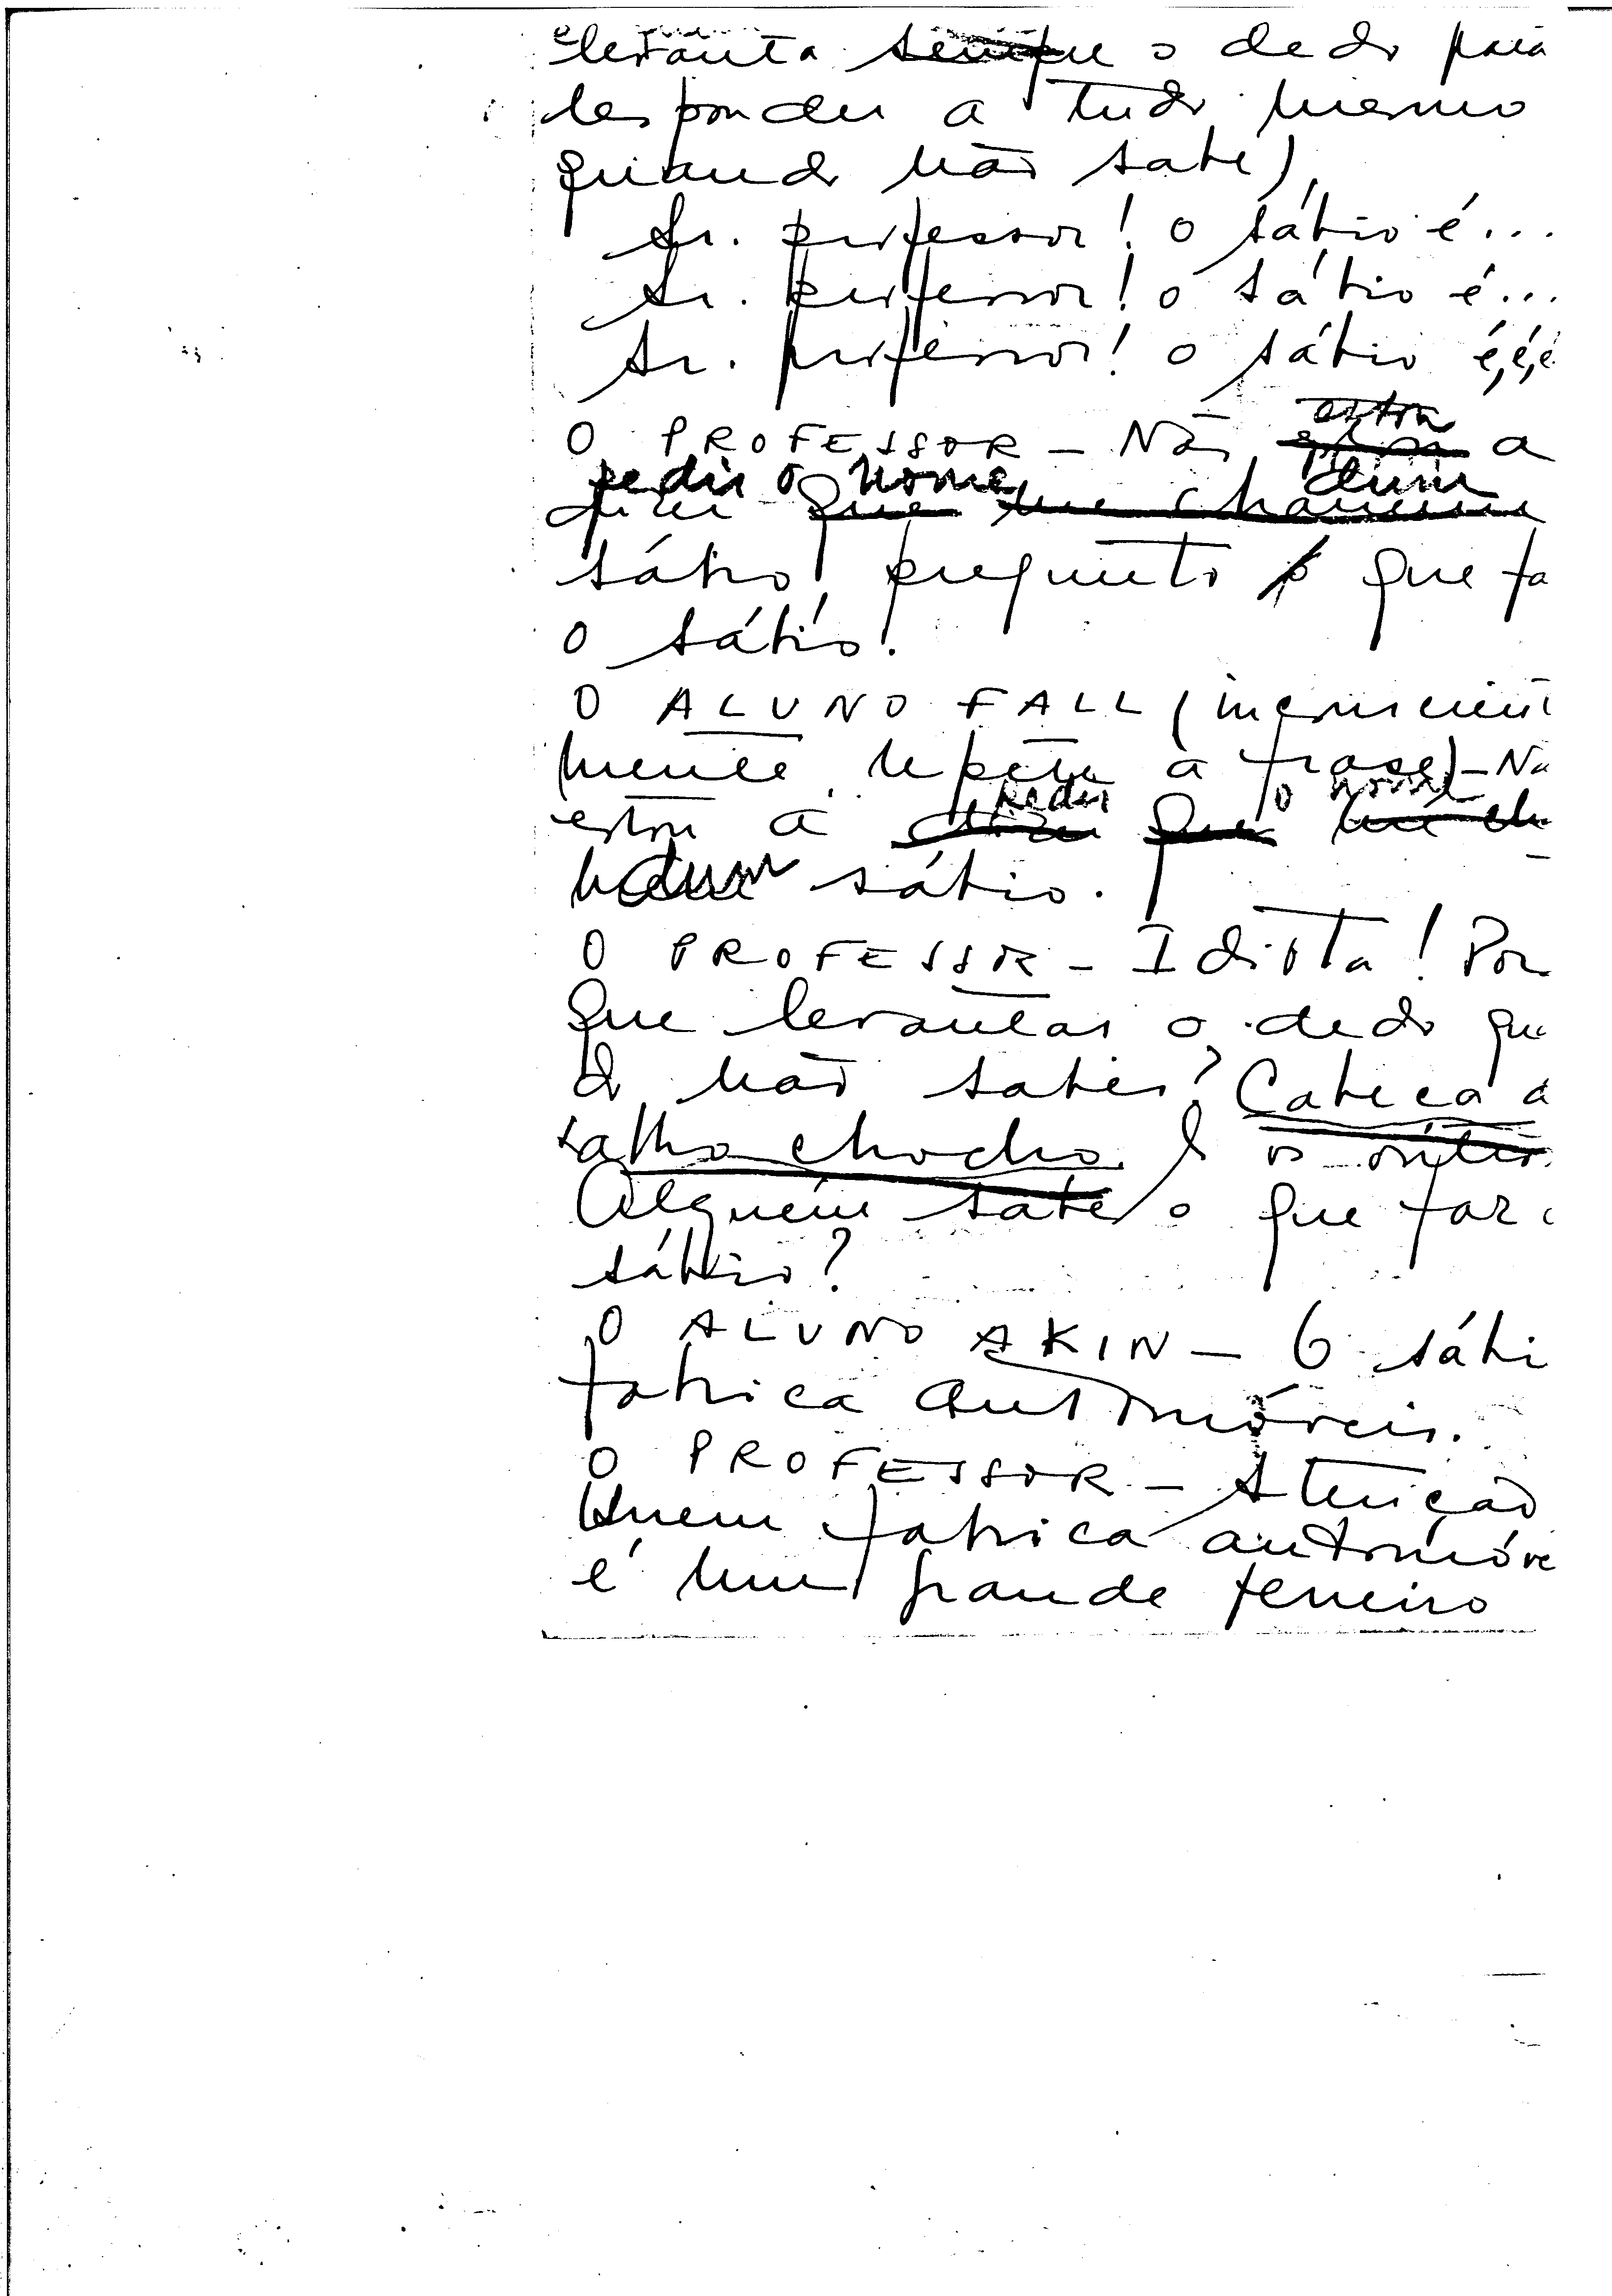 levanta sempre o dedo para
responder a tudo mesmo
quando não sabe).
Sr. professor! O sábio é...
Sr. professor! O sábio é...
Sr. professor! O sábio é, é, é
estou
O PROFESSOR - Não a
pedir o nome dum
dizer que me chamem
sábio! pregunto o que fa
o sábio!
O ALUNO FALL (inconscient
mente, repete a frase) - Nã
pedir o nome
estou a dizer que me ch
dum sábio.
O PROFESSOR - Idiota! Por
que levantas o dedo qu
do não sabes? Cabeça d
alho chocho. E os outros.
Alguém sabe o que faz o
sábio?
O ALUNO AKIN - O sábi
fabrica automóveis.
O PROFESSOR - Atenção
Quem fabrica automóve
é um grande ferreiro